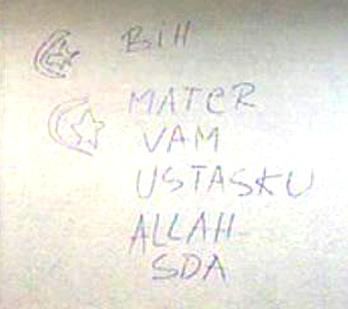 BiH
MATER
VAM
USTASKU
ALLAH
SDA